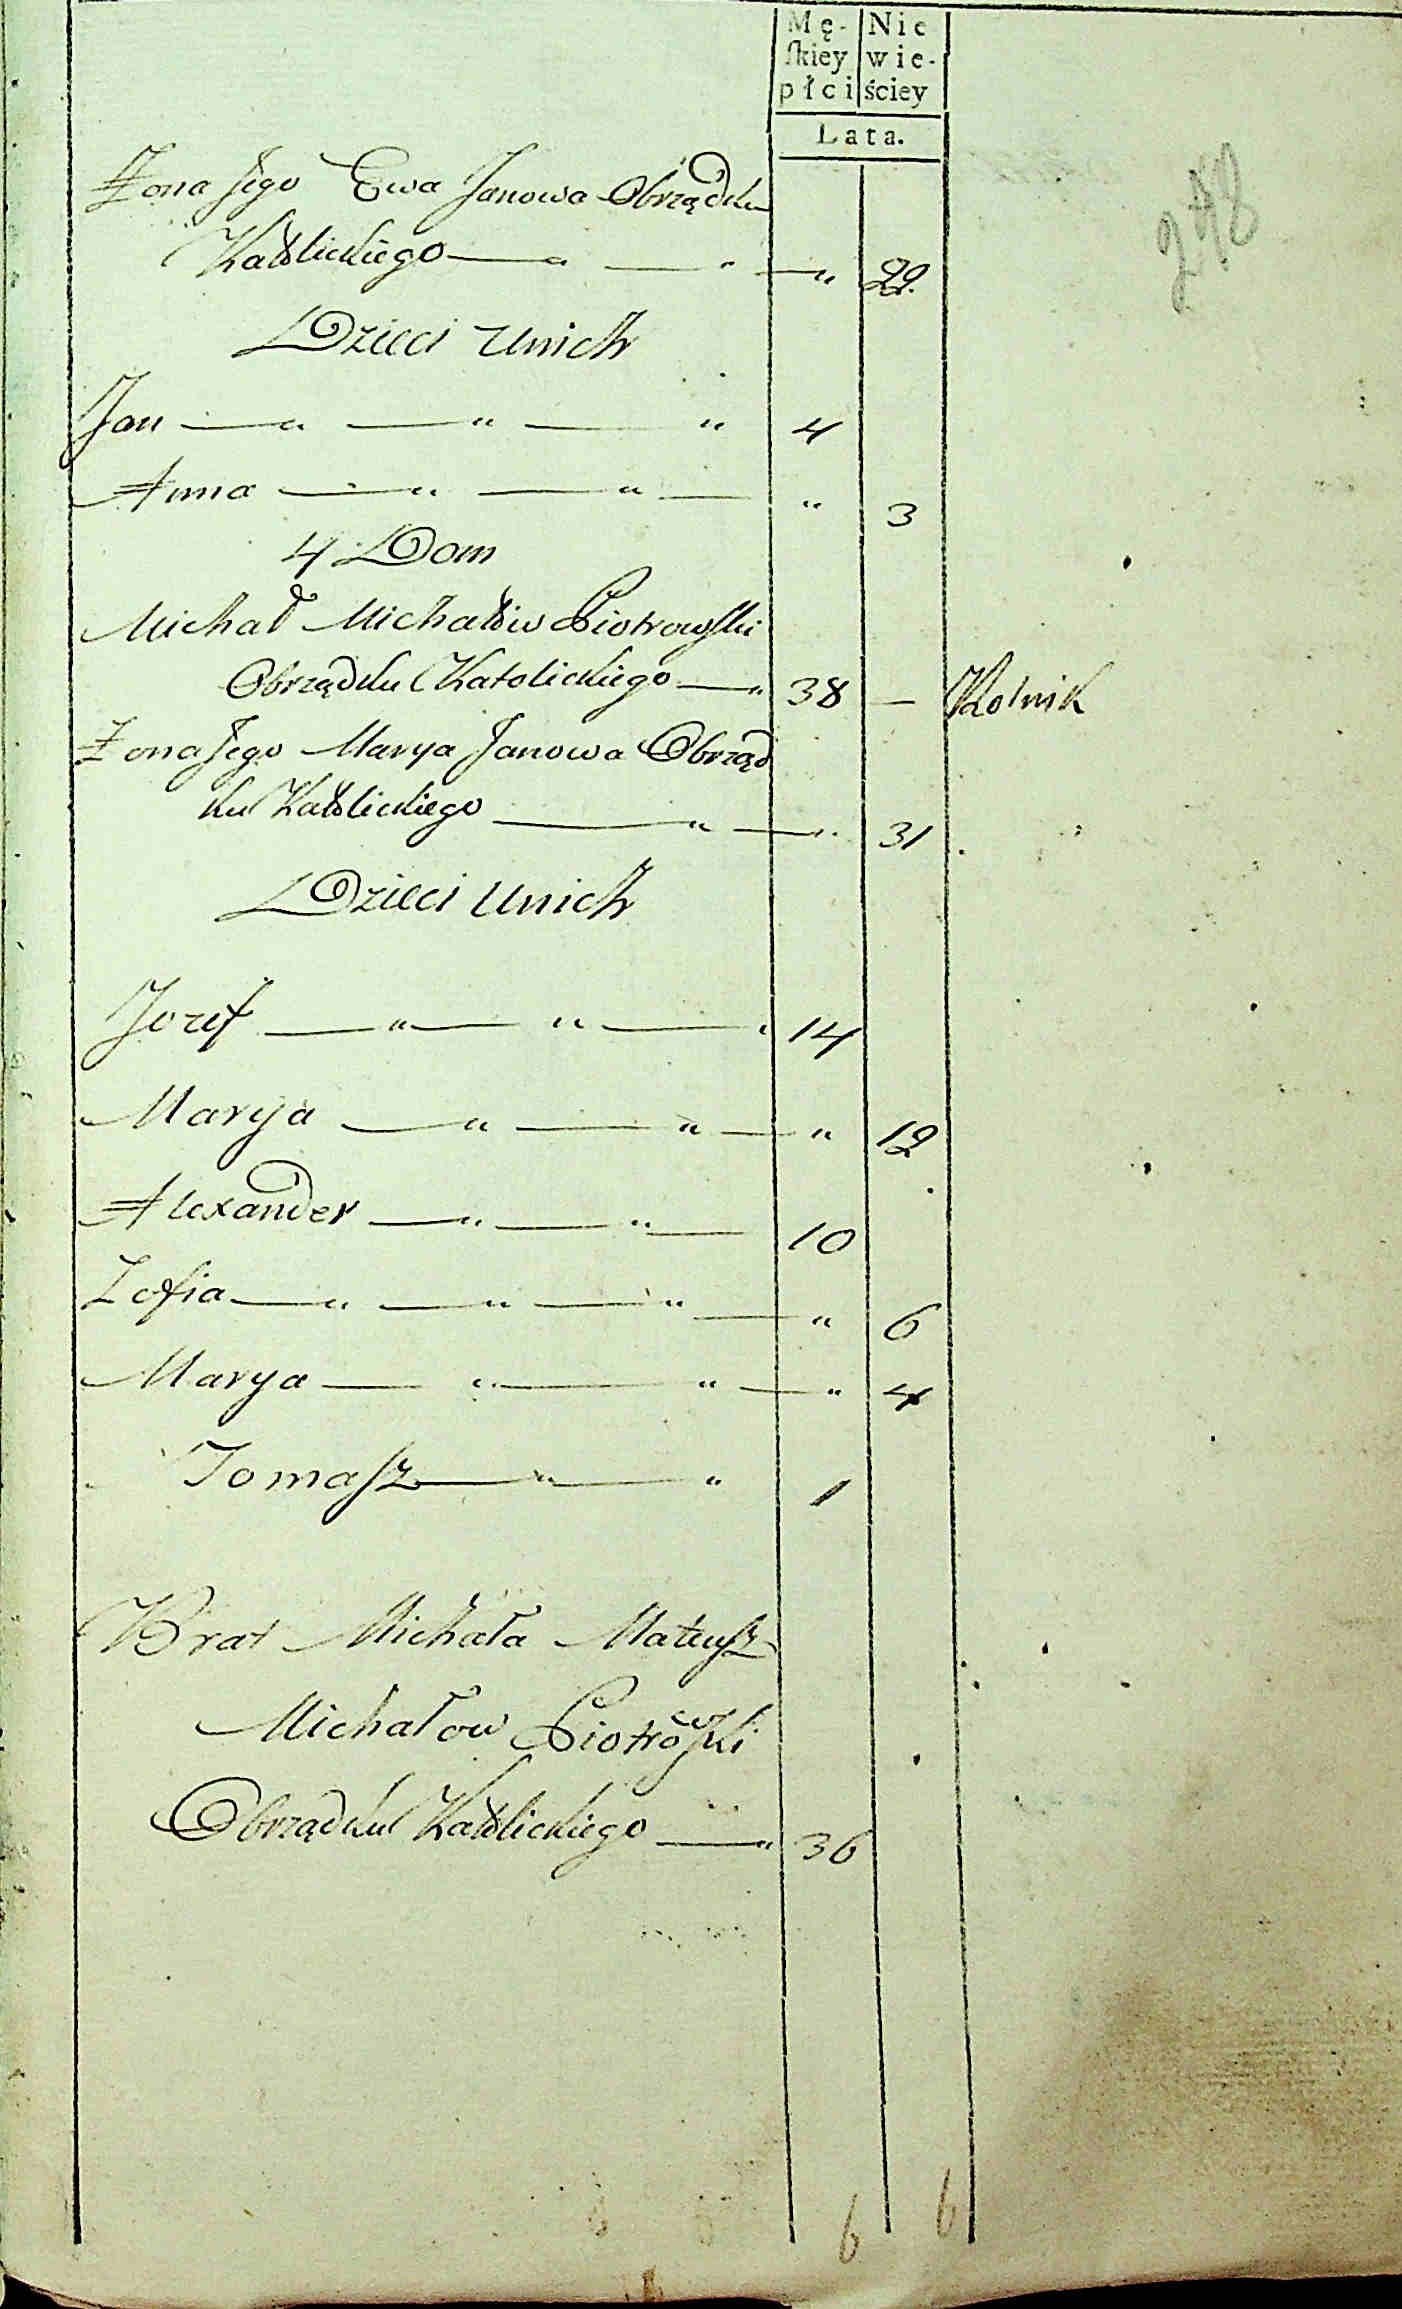 Mę-
skiey
płci
Nie
wie-
ściey
Lata.
278
Żona Jego Ewa Janowa Obrządku
Katolickiego — " — " — " 22.
Dzieci Unich
Jan — " — " — " 4
Anna — " — " — " 3
4 Dom
Michał Michałow Piotrowski
Obrządku Katolickiego — " 38 — Rolnik
Żona Jego Marya Janowa Obrząd
ku Katolickiego — " — " 31
Dzieci Unich
Jozef — " — " — " 14
Marya — " — " — " 12
Alexander — " — " — 10
Zofia — " — " — " — " 6
Marya — " — " — " 4
Tomasz — " — " 1
Brat Michała Mateusz
Michałow Piotrowski
Obrządku Katolickiego — " 36
6 6